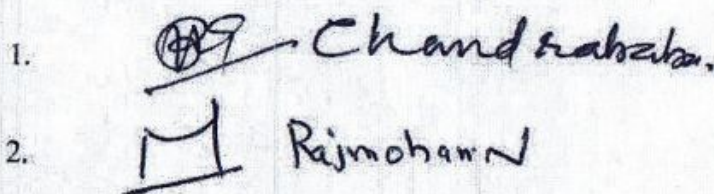 1. Chandrababu.
2. Rajmohan N